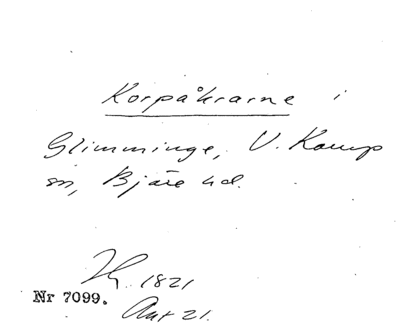 Korpåkrarne i
Glimminge, V. Karup
sn, Bjäre hd.
1821
Nr 7099.
Akt 21.